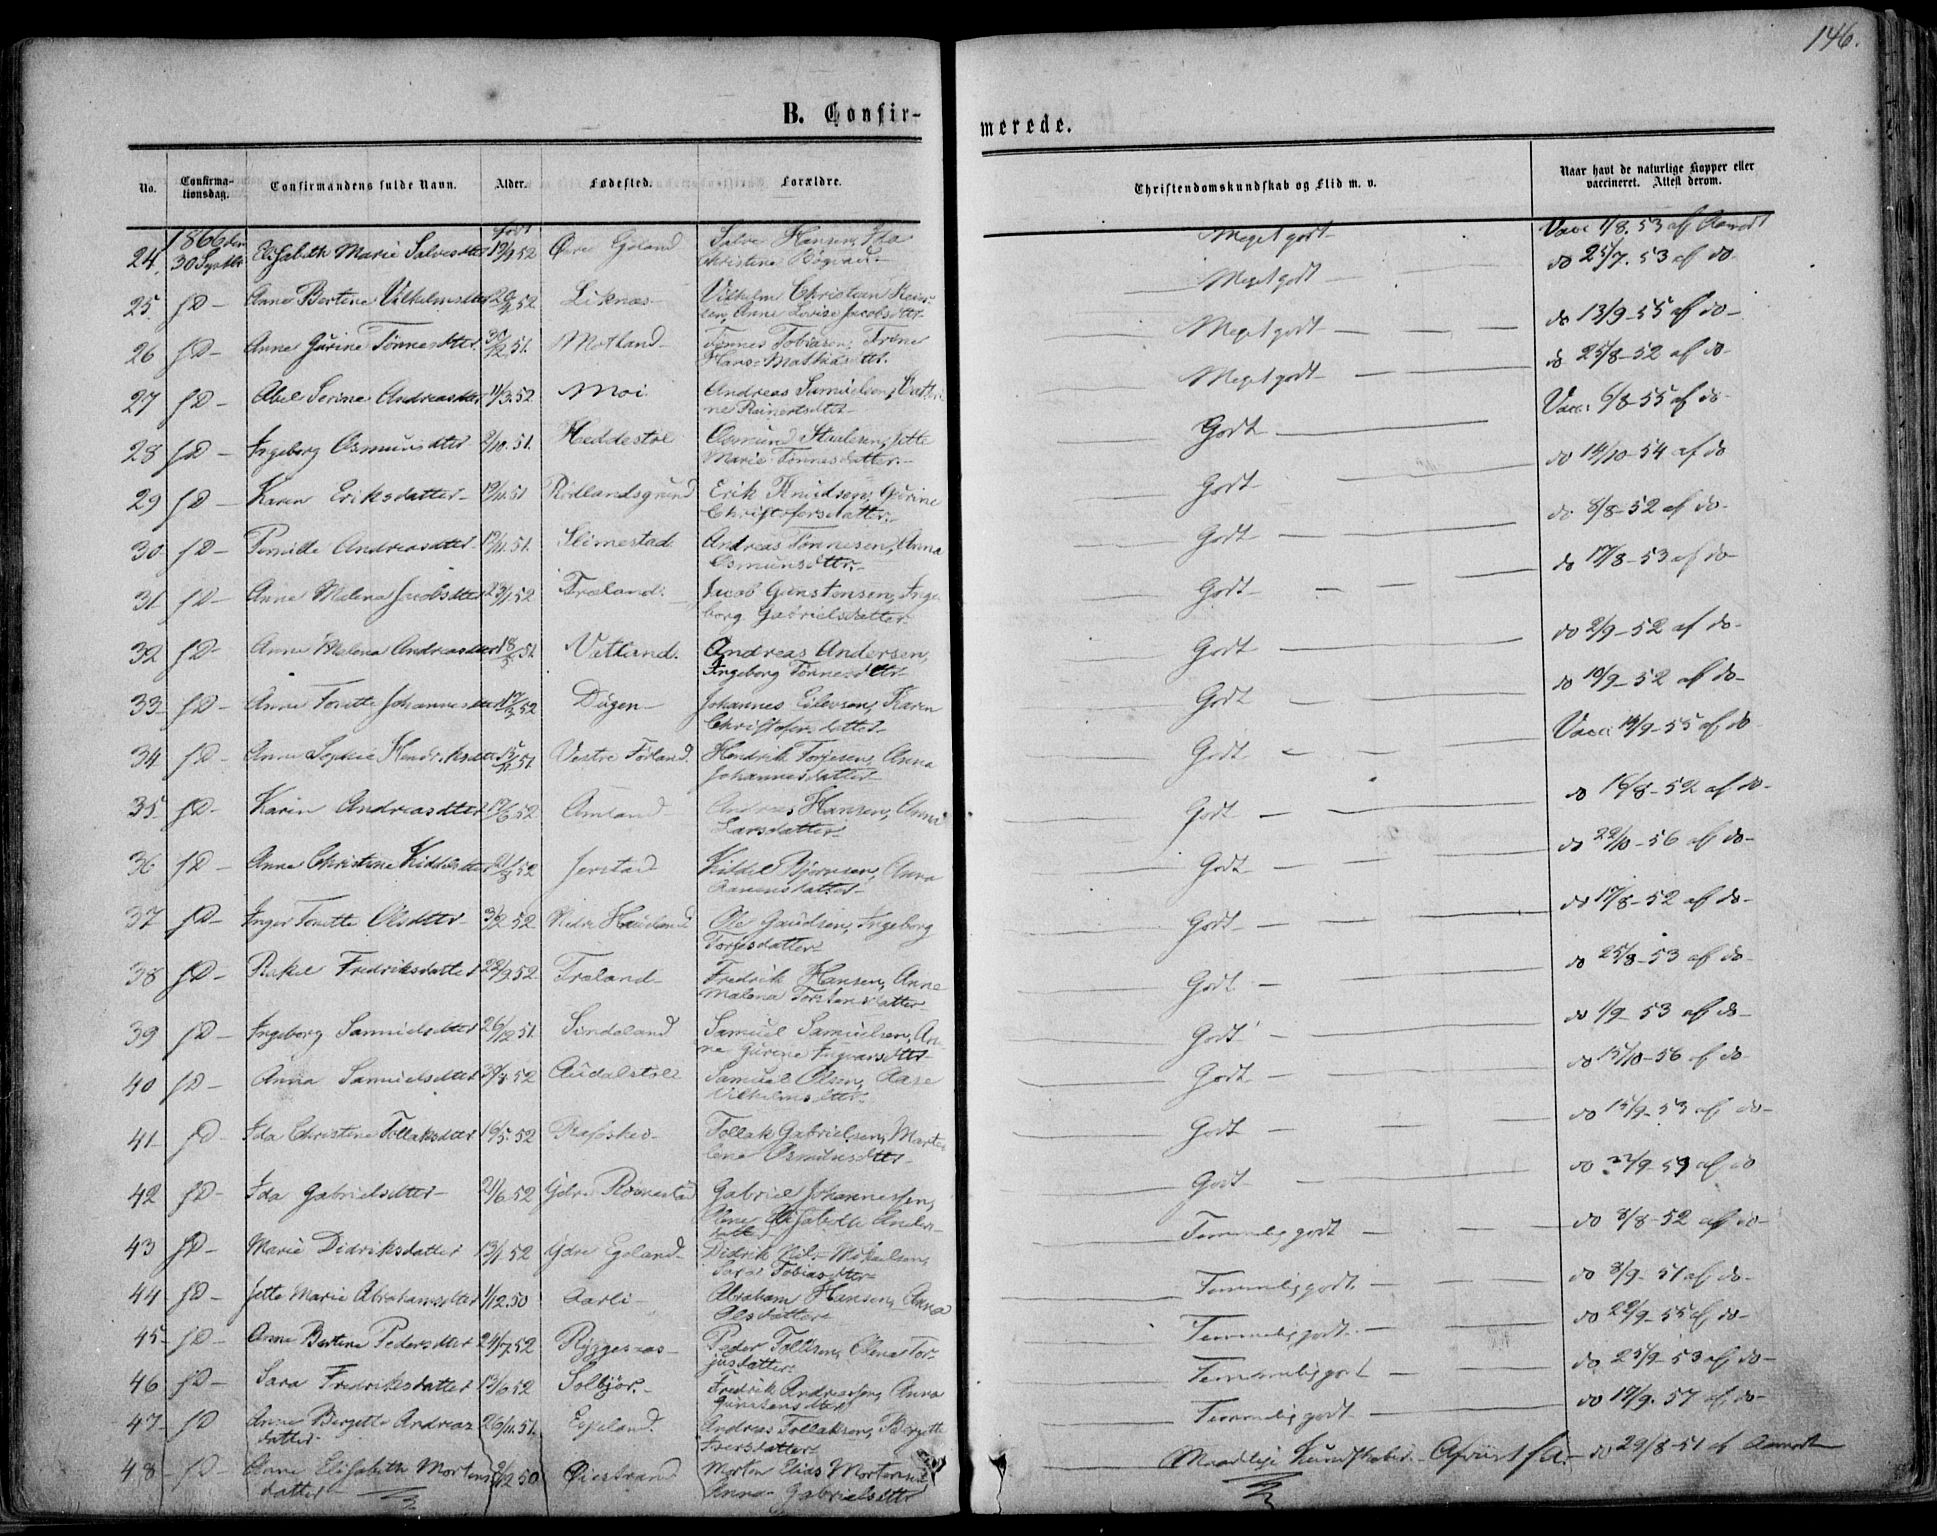 146.
B. Confir-
merede.
No.
Confirma-
tionsdag.
Confirmandens fulde Navn.
Alder.
Fødested.
Forældre.
Christendomskundskab og Flid m. v.
Naar havt de naturlige Kopper eller
vaccineret. Attest derom.
1866 den
født
24 30 Septbr Elisabeth Marie Salvesdtter 19/9 52 Øvre Egeland Salve Hansen,
Christine
Meget godt Vacc 1/8. 53 af Aamodt
25 fD- Anne Bertine Vilhelmsdtter 52 Liknæs Vilhelm Christian
Anne Lovise Jacobsdtter
Meget godt do 25/7. 53 af do
26 fD- Anne Gurine Tønnesdtter 30/12 51. Motland Tønnes Tobiasen,
Mathiasdtter
Meget godt do 13/9-55 af do-
27 fD- Abel Serine Andreasdtter 11/3.52 Moi Andreas Samuelsen,
ne Reinertsdtter
Meget godt do 25/8-52 af do-
28 fD- Ingeborg Osmundsdtter 2/10.51. Heddestøl Osmund Staalesen, Jette
Marie Tønnesdatter
Godt Vacc 6/8-55 af do-
29 fD- Karen Eriksdatter 19/10.51 Rødlandsgrund Erik Knudsen, Gurine
Christofersdatter
Godt do 14/10-54 af do
30 fD- Pernille Andreasdtter 51. Slimestad Andreas Tønnesen, Anna
Osmunsdtter
Godt do 8/8-52 af do-
31 fD- Anne Malena Jacobsdtter 23/1 52 Træland Jacob Gunstensen, Inge
borg Gabrielsdatter
Godt do 17/8-53 af do
32 fD- Anne Malena Andreasdtter 51. Vatland. Andreas Andersen,
Ingeborg Tønnesdtter
Godt do 2/9-52 af do-
33 fD- Anne Tonette Johannesdtter 52 Dugen Johannes Eilevsen, Karen
Christofersdatter
Godt do 10/9-52 af do-
34 fD- Anne Sophie Hendriksdtter 51. Vestre Førland. Hendrik Torjesen, Anna
Johannesdatter
Godt Vacc 19/9-55 af do
35 fD- Karin Andreasdtter 17/6 52 Amland Andreas Hansen, Anna
Larsdatter
Godt do 16/8-52 af do-
36 fD- Anne Christine Kiddelsdtter 52 Jerstad Kiddel Bjørnsen, Anna
Aanensdatter
Godt do 22/10-56 af do-
37 fD- Inger Tonette Olsdtter 3/2 52 Nedre Haugland Ole Gaudsen, Ingeborg
Torjesdatter
Godt do 17/8-52 af do-
38 fD- Rakel Fredriksdatter 22/9 52 Træland Fredrik Hansen, Anne
Malena Torstensdatter
Godt do 25/8-53 af do-
39 fD- Ingeborg Samuelsdtter 26/12 51. Sindaland Samuel Samuelsen, An-
ne Gurine Ingvarsdtter
Godt do 1/9-53 af do-
40 fD- Anna Samuelsdtter 52 Audalstøl Samuel Olsen, Aase
Vilhelmsdtter
Godt do 15/10-56 af do
41 fD- Ida Christine Tollaksdtter 16/5.52 Refsskes Tollak Gabrielsen, Marte
lene Osmundsdtter
Godt do 15/9-53 af do-
42 fD- Ida Gabrielsdtter 21/6.52 Ydre Rømestad Gabriel Johannessen,
Anne Elisabeth Anders-
datter
Godt do 22/9-59 af do
43 fD- Marie Didriksdatter 13/1 52 Ydre Egeland Didrik Nil- Mikaelsen,
Sara Tobiasdtter
Temmelig godt do 8/8-52 af do-
44 fD- Jette Marie Abrahamsdtter 1/12.50 Aarli Abraham Hansen, Anna
Olsdatter
Temmelig godt do 8/9-51 af do-
45 fD- Anne Bertine Pedersdtter 24/7.52 Ryggesaas Peder Tollisen, Elena Tor-
jusdatter
Temmelig godt do 22/9-55 af do-
46 fD- Sara Fredriksdatter 13/6 52 Solbjør Fredrik Andreassen, Anna
Gunstensdtter
Temmelig godt do 25/9-53 af do-
47 fD Anne Bergitte Andreas 26/11.51. Espeland Andreas Tollaksen, Bergitte
datter Iversdatter
Temmelig godt do 17/9-57 af do-
48 fD- Anne Elisabeth Mortens 2/12 50 Øiestrand Morten Elias Mortensen
datter Anna Gabrielsdtter
Maadelige Kundskaber do 29/8-51 af Aamodt